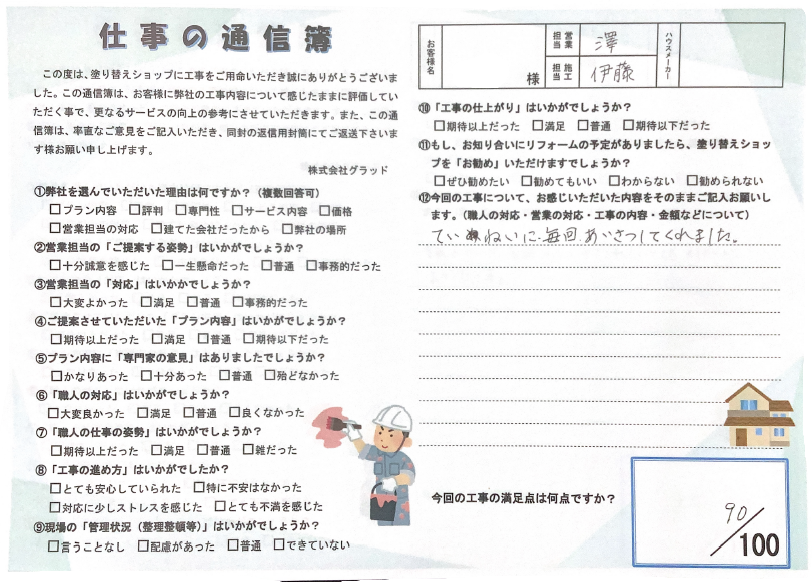 仕事の通信簿
この度は、塗り替えショップに工事をご用命いただき誠にありがとうございま
した。この通信簿は、お客様に弊社の工事内容について感じたままに評価してい
ただく事で、更なるサービスの向上の参考にさせていただきます。また、この通
信簿は、率直なご意見をご記入いただき、同封の返信用封筒にてご返送下さいま
す様お願い申し上げます。
株式会社グラッド
①弊社を選んでいただいた理由は何ですか？（複数回答可）
□プラン内容 □評判 □専門性 □サービス内容 □価格
□営業担当の対応 □建てた会社だったから □弊社の場所
②営業担当の「ご提案する姿勢」はいかがでしょうか？
□十分誠意を感じた □一生懸命だった □普通 □事務的だった
③営業担当の「対応」はいかかでしょうか？
□大変よかった □満足 □普通 □事務的だった
④ご提案させていただいた「プラン内容」はいかがでしょうか？
□期待以上だった □満足 □普通 □期待以下だった
⑤プラン内容に「専門家の意見」はありましたでしょうか？
□かなりあった □十分あった □普通 □殆どなかった
⑥「職人の対応」はいかがでしょうか？
□大変良かった □満足 □普通 □良くなかった
⑦「職人の仕事の姿勢」はいかがでしょうか？
□期待以上だった □満足 □普通 □雑だった
⑧「工事の進め方」はいかがでしたか？
□とても安心していられた □特に不安はなかった
□対応に少しストレスを感じた □とても不満を感じた
⑨現場の「管理状況（整理整頓等）」はいかがでしょうか？
□言うことなし □配慮があった □普通 □できていない
お客様名
様
営業担当
澤
施工担当
伊藤
ハウスメーカー
⑩「工事の仕上がり」はいかがでしょうか？
□期待以上だった □満足 □普通 □期待以下だった
⑪もし、お知り合いにリフォームの予定がありましたら、塗り替えショッ
プを「お勧め」いただけますでしょうか？
□ぜひ勧めたい □勧めてもいい □わからない □勧められない
⑫今回の工事について、お感じいただいた内容をそのままご記入お願いし
ます。（職人の対応・営業の対応・工事の内容・金額などについて）
ていねいに毎回あいさつしてくれました。
今回の工事の満足点は何点ですか？
90/100